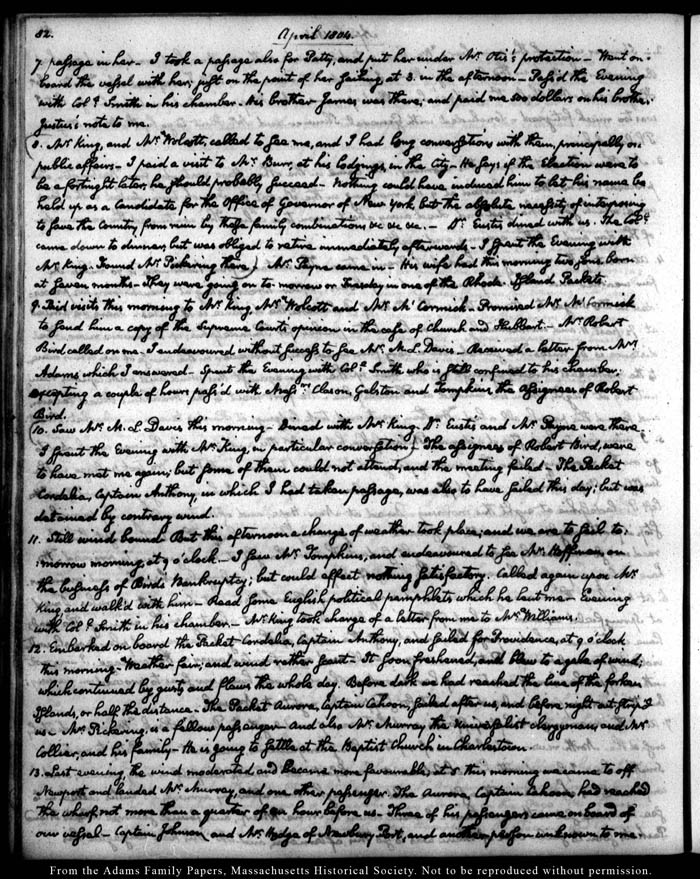 82.
April 1804.
7 passage in her — I took a passage also for Patty, and put her under Mr. Otis's protection — Went on-
board the vessel with her, just on the point of her sailing, at 3. in the afternoon — Pass'd the Evening
with Coll. Smith in his chamber. His brother James was there, and paid me 500 dollars on his brother
Justus's note to me.
8. Mr. King, and Mr. Wolcott, called to see me, and I had long conversations with them, principally on
public affairs — I paid a visit to Mr. Burr, at his lodgings, in the City — He says, if the Election were to
be a fortnight later, he should probably succeed — Nothing could have induced him to let his name be
held up as a Candidate for the Office of Governor of New York, but the absolute necessity of interposing
to save the Country from ruin by these family combinations &c &c &c. — Dr. Eustis dined with us. The Coll.
came down to dinner, but was obliged to retire immediately afterwards — I spent the Evening with
Mr. King. Found Mr. Pickering there) Mr. Payne came in — His wife had this morning two sons born
at seven months — They were going on to-morrow or Tuesday in one of the Rhode-Island Packets.
9. Paid visits this morning to Mr. King Mr. Wolcott and Mr. McCormick — Promised Mr. McCormick
to send him a copy of the Supreme Court's opinion in the case of Church and Hubbart. — Mr. Robert
Bird called on me. I endeavoured without success to see Mr. M. L. Davis — Received a letter from Mrs.
Adams which I answered — Spent the Evening with Coll. Smith who is still confined to his chamber.
excepting a couple of hours pass'd with Messrs. Clason, Gelston and Tompkins, the assignees of Robert
Bird.
10. Saw Mr. M. L. Davis this morning — Dined with Mr. King. Dr. Eustis and Mr. Payne were there.
I spent the Evening with Mr. King, in particular conversation) The assignees of Robert Bird, were
to have met me again, but some of them could not attend, and the meeting failed — The Packet
Cordelia, Captain Anthony, in which I had taken passage, was also to have sailed this day; but was
detained by contrary wind.
11. Still wind bound. But this afternoon a change of weather took place; and we are to sail to-
morrow morning, at 9 o'clock — I saw Mr. Tompkins, and endeavoured to see Mr. Hoffman, on
the business of Bird's Bankruptcy; but could effect nothing satisfactory. Called again upon Mr.
King and walk'd with him — Read some English political pamphlets which he lent me — Evening
with Coll. Smith in his chamber — Mr. King took charge of a letter from me to Mr. Williams.
12. Embarked on board the Packet Cordelia, Captain Anthony, and sailed for Providence, at 9 o'clock
this morning. Weather fair, and wind rather scant — It soon freshened, and blew to a gale of wind;
which continued by gusts and flaws the whole day. Before dark we had reached the line of the forken
Islands, or half the distance. The Packet Aurora, Captain Cahoon, sailed after us, and before night outstripp'd
us — Mr. Pickering, is a fellow passenger — And also Mr. Murray, the Universalist clergyman, and Mr.
Collier, and his family — He is going to settle at the Baptist Church in Charlestown.
13. Last evening the wind moderated, and became more favourable; at 5 this morning we came to off
Newport and landed Mr. Murray, and one other passenger. The Aurora, Captain Cahoon, had reached
the wharf, not more than a quarter of an hour before us — Three of his passengers came on board of
our vessel — Captain Johnson, and Mr. Hodge of Newbury Port, and another person unknown to me —
From the Adams Family Papers, Massachusetts Historical Society. Not to be reproduced without permission.